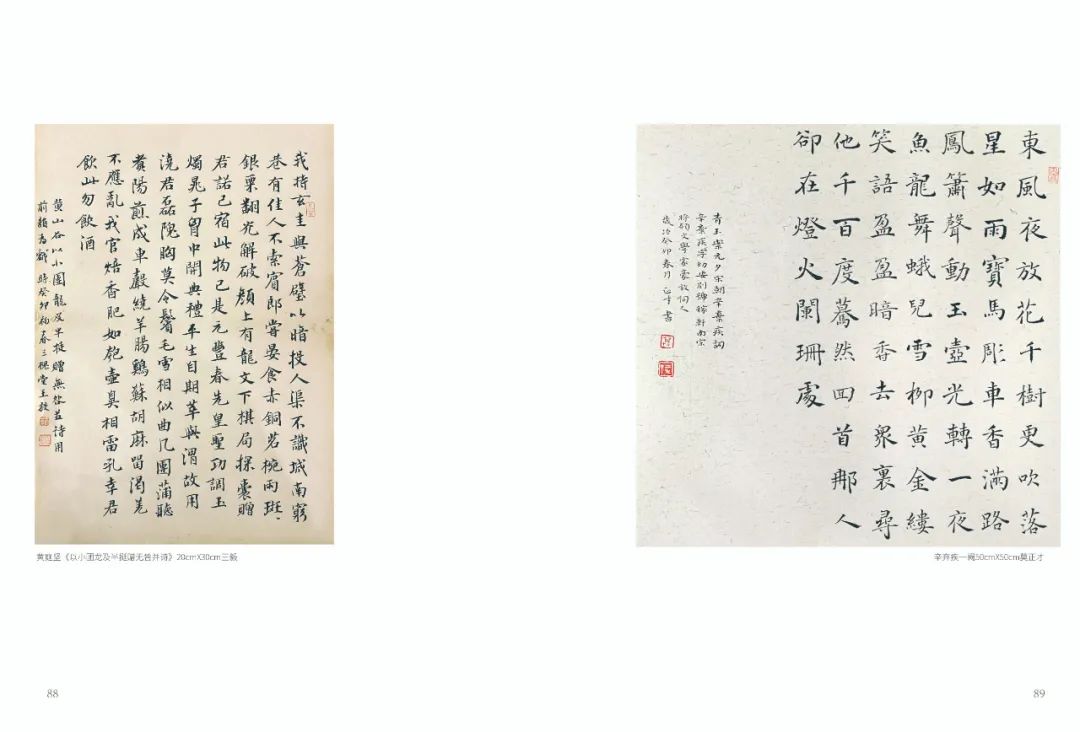 我持玄圭與蒼璧以暗投人渠不識城南窮
巷有佳人不索賓郎嘗晏食赤銅茗椀雨斑、
銀粟翻光解破顏上有龍文下棋局探囊贈
君諾已宿此物已是元豐春先皇聖功調玉
燭晁子胷中開典禮平生自期莘與渭故用
澆君磊隗胸莫令鬢毛雪相似曲几團蒲聽
煎成車聲繞羊腸鷄蘇胡麻留渴羌
不應亂我官焙香肥如瓠壺鼻相雷孔幸君
飲此勿飲酒
黄山谷以小團龍及半挺贈無咎並詩用
前韻為戲 時癸卯初春三
黄庭坚《以小团龙及半挺赠无咎并诗》20cmX30cm三毅
88
東風夜放花千樹更吹落
星如雨寶馬彫車香滿路
鳳簫聲動玉壺光轉一夜
魚龍舞蛾兒雪柳黃金縷
笑語盈盈暗香去衆裏尋
他千百度驀然回首那人
卻在燈火闌珊處
青玉案元夕宋朝辛棄疾詞
辛棄疾字幼安別號稼軒南宋
文學家豪放詞人
歲次癸卯春月正才書
辛弃疾一阙50cmX50cm莫正才
89